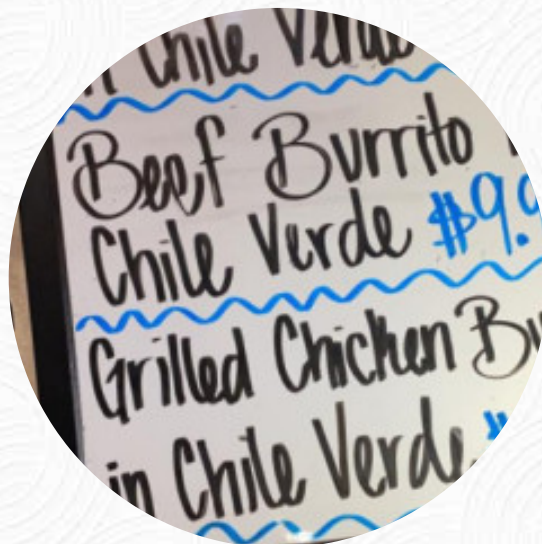 Chile Verde
Beef Burrito
Chile Verde $9.9
Grilled Chicken
in Chile Verde